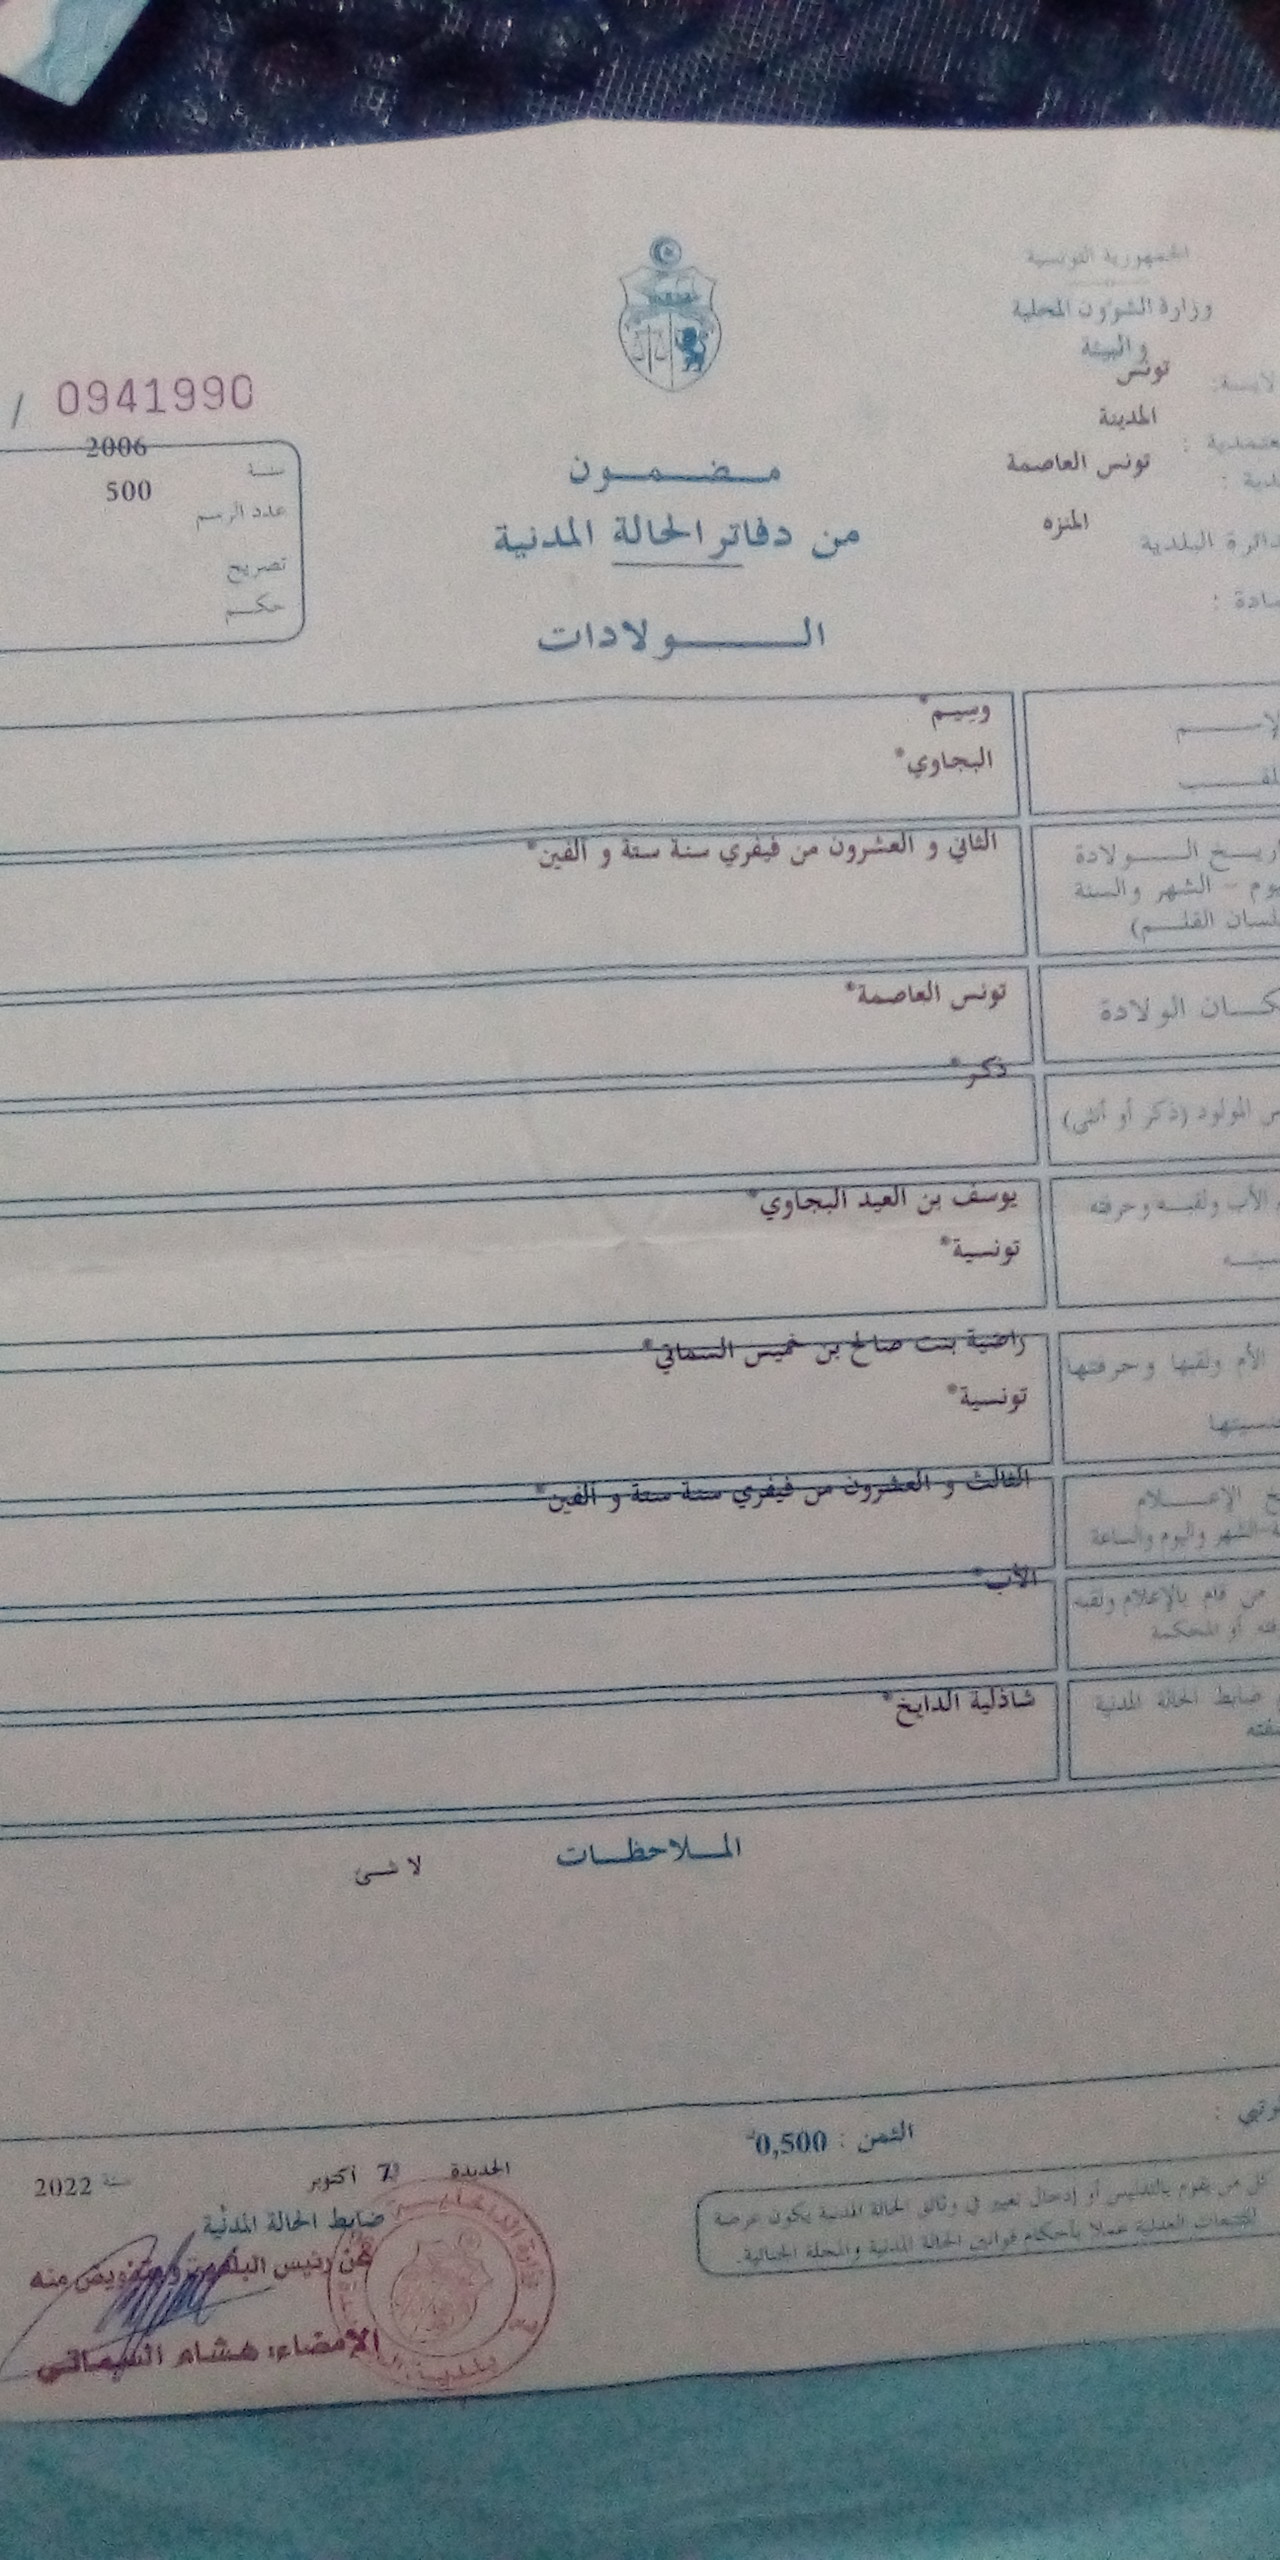 الجمهورية التونسية
وزارة الشؤون المحلية
و البيئة
تونس
المدينة
تونس العاصمة
المنزه
دائرة البلدية
/ 0941990
سنة 2006
عدد الرسم 500
تصريح
حكم
مضمون
من دفاتر الحالة المدنية
الولادات
وسيم*
البجاوي*
الولادة
الثاني و العشرون من فيفري سنة ستة و ألفين*
الشهر والسنة
القلم)
الولادة
تونس العاصمة*
المولود (ذكر أو أنثى)
ذكر*
الأب ولقبه وحرفته
يوسف بن العيد البجاوي*
تونسية*
الأم ولقبها وحرفتها
راضية بنت صالح بن خميس السماتي*
تونسية*
الإعلام
الثالث و العشرون من فيفري سنة ستة و ألفين*
الشهر واليوم والساعة
من قام بالإعلام ولقبه
الأب*
أو المحكمة
ضابط الحالة المدنية
شاذلية الدايخ*
الملاحظات
لا شئ
الثمن : 0,500د
كل من يقوم بالتدليس أو إدخال تغيير في وثائق الحالة المدنية يكون عرضة
للتتبعات العدلية عملا بأحكام قوانين الحالة المدنية والمجلة الجنائية.
الحديدة 7 أكتوبر سنة 2022
ضابط الحالة المدنية
عن رئيس البلدية وبتفويض منه
الإمضاء: هشام السماتي